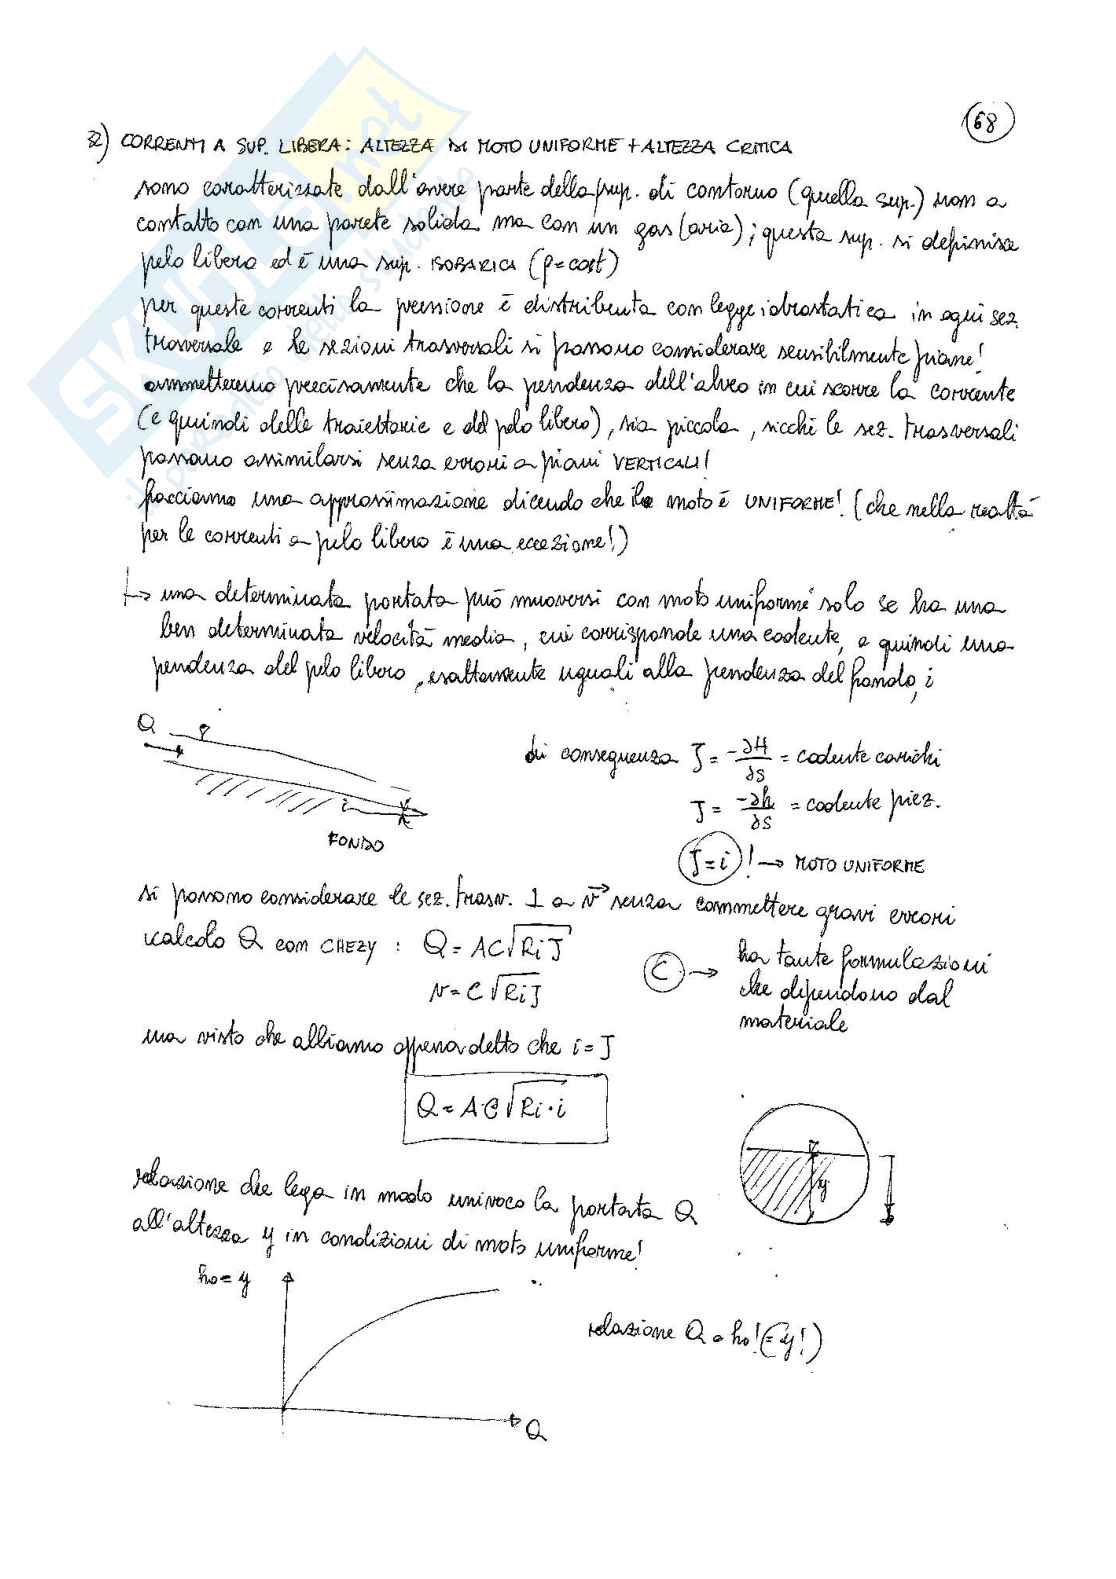 68
32) CORRENTI A SUP. LIBERA: ALTEZZA DI MOTO UNIFORME + ALTEZZA CRITICA
sono caratterizzate dall'avere parte della sup. di contorno (quella sup.) non a
contatto con una parete solida ma con un gas (aria); questa sup. si definisce
pelo libero ed è una sup. ISOBARICA (p=cost)
per queste correnti la pressione è distribuita con legge idrostatica in ogni sez.
trasversale e le sezioni trasversali si possono considerare sensibilmente piane!
ammetteremo precisamente che la pendenza dell'alveo in cui scorre la corrente
(e quindi delle traiettorie e del pelo libero), sia piccola, sicchè le sez. trasversali
possano assimilarsi senza errori a piani VERTICALI!
facciamo una approssimazione dicendo che il moto è UNIFORME! (che nella realtà
per le correnti a pelo libero è una eccezione!)
↳ una determinata portata può muoversi con moto uniforme solo se ha una
ben determinata velocità media, cui corrisponde una cadente, e quindi una
pendenza del pelo libero, esattamente uguali alla pendenza del fondo, i
Q
i
FONDO
di conseguenza J = -∂H/∂s = cadente carichi
J = -∂h/∂s = cadente piez.
J=i ! → MOTO UNIFORME
si possono considerare le sez. trasv. ⊥ a v→ senza commettere gravi errori
calcolo Q con CHEZY : Q = AC√Ri J
v = C√Ri J
C → ha tante formulazioni
che dipendono dal
materiale
ma visto che abbiamo appena detto che i = J
Q = A·C√Ri·i
y
relazione che lega in modo univoco la portata Q
all'altezza y in condizioni di moto uniforme!
ho = y
Q
relazione Q - ho! (=y!)